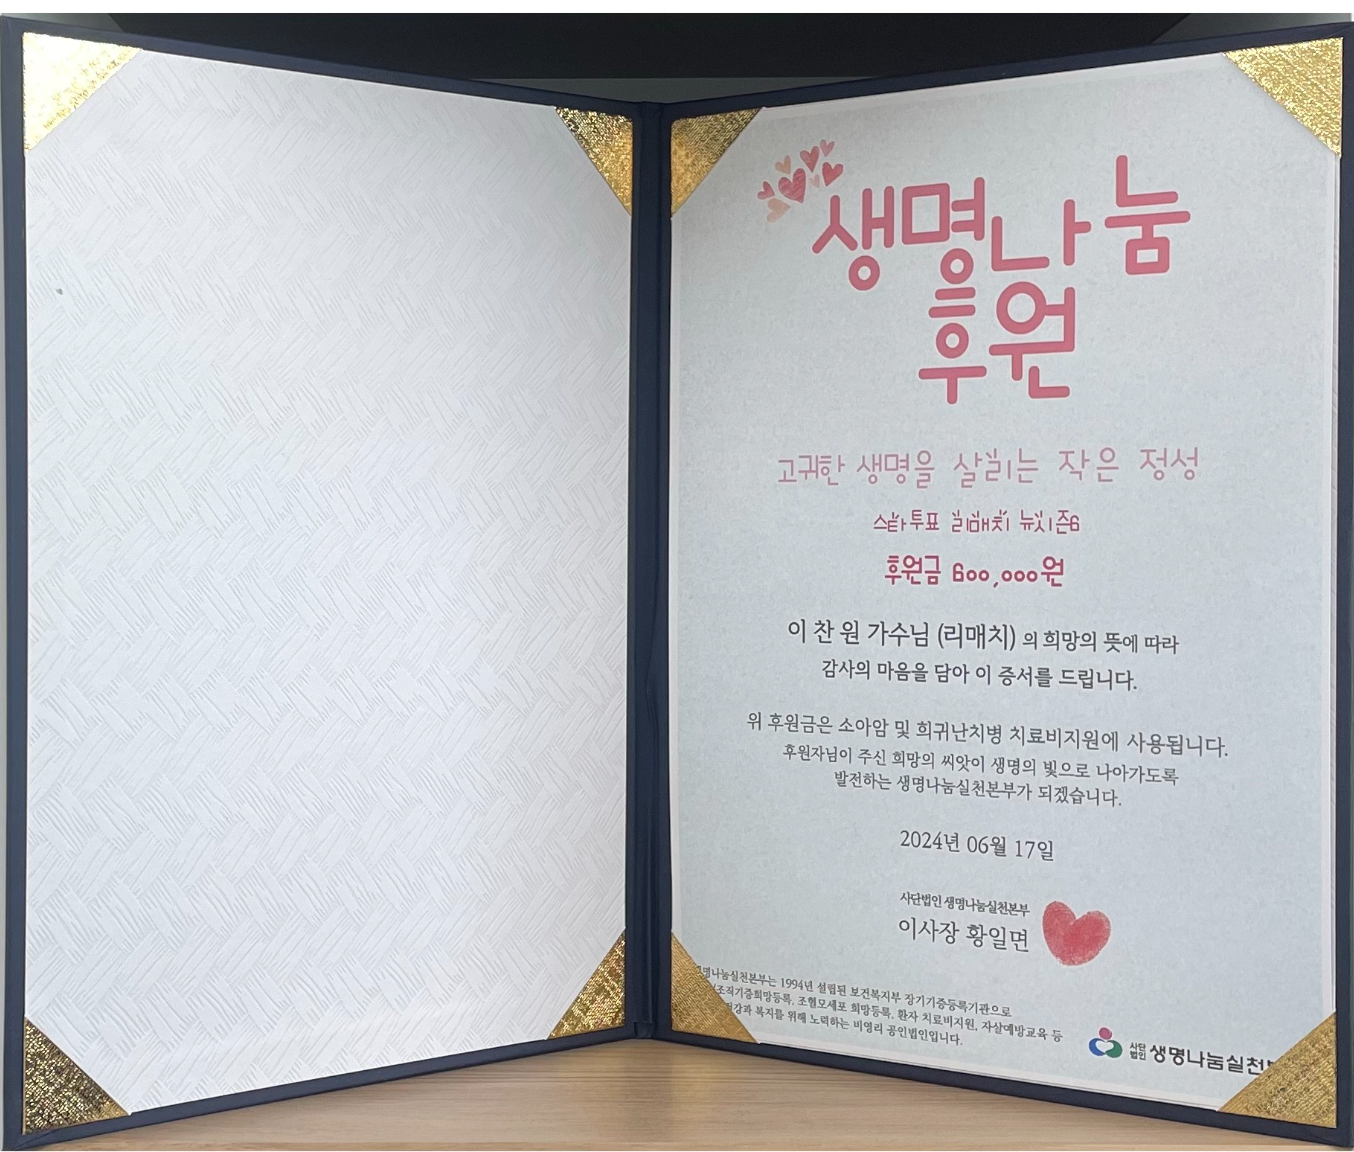 생명나눔
후원
고귀한 생명을 살리는 작은 정성
스타투표 리매치 뉴시즌6
후원금 600,000원
이 찬 원 가수님 (리매치) 의 희망의 뜻에 따라
감사의 마음을 담아 이 증서를 드립니다.
위 후원금은 소아암 및 희귀난치병 치료비지원에 사용됩니다.
후원자님이 주신 희망의 씨앗이 생명의 빛으로 나아가도록
발전하는 생명나눔실천본부가 되겠습니다.
2024년 06월 17일
사단법인 생명나눔실천본부
이사장 황일면
명나눔실천본부는 1994년 설립된 보건복지부 장기기증등록기관으로
조직기증희망등록, 조혈모세포 희망등록, 환자 치료비지원, 자살예방교육 등
강과 복지를 위해 노력하는 비영리 공인법인입니다.
사단법인 생명나눔실천